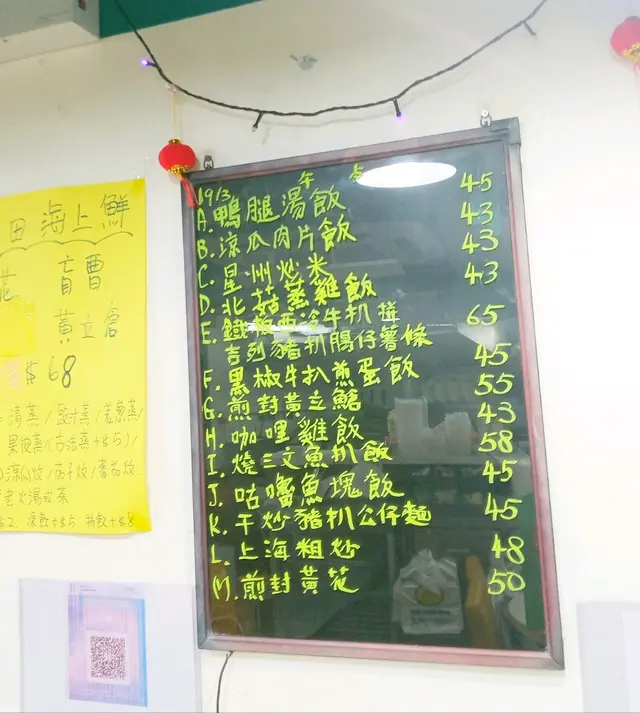 田海上鮮
花 盲曹
黃立倉
$68
清蒸/豉汁蒸/羌葱蒸/
果皮蒸(古法蒸+$5)/
涼瓜炆/茄子炆/番茄炆
老火湯或菜
凍飲+$5
19/3 午
A.鴨腿湯飯 45
B.涼瓜肉片飯 43
C.星州炒米 43
D.北菇蒸雞飯 43
E.鐵板西冷牛扒拼
吉列豬扒腸仔薯條 65
F.黑椒牛扒煎蛋飯 45
G.煎封黃立鯧 55
H.咖哩雞飯 43
I.燒三文魚扒飯 58
J.咕嚕魚塊飯 45
K.干炒豬扒公仔麵 45
L.上海粗炒 48
M.煎封黃花 50